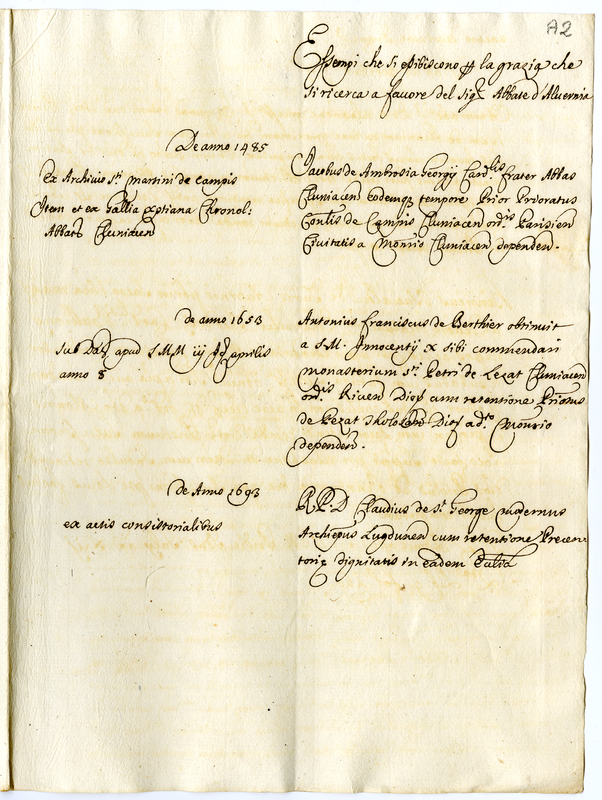 A2
Essempi che si esibiscono p la grazia che
si ricerca a favore del Sig.r Abbate d'Aluernia
De anno 1485
Ex Archivio S.ti Martini de Campis
Item et ex Gallia Xptiana Chronol:
Abbat Cluniacen
Jacobus de Ambosia Georgij Card.lis frater Abbas
Cluniacen eodemq tempore Prior Prioratus
de Campis Cluniacen ord.is Parisien
Civitatis a Cluniacen dependen.
de anno 1653
Sub Dat apud S.M.M. iij aprilis
anno 8
Antonius Franciscus de Berthier obtinuit
a S.M. Innocentij X sibi commendari
monasterium S.ti Petri de Lezat Cluniacen
ord.is Riven Dioc cum retentione
de Dioc ad.to
dependen.
de Anno 1693
ex actis consistorialibus
R.P.D Claudius de S.t George modernus
Archiepus Lugdunen cum retentione Precen
torie dignitatis in eadem